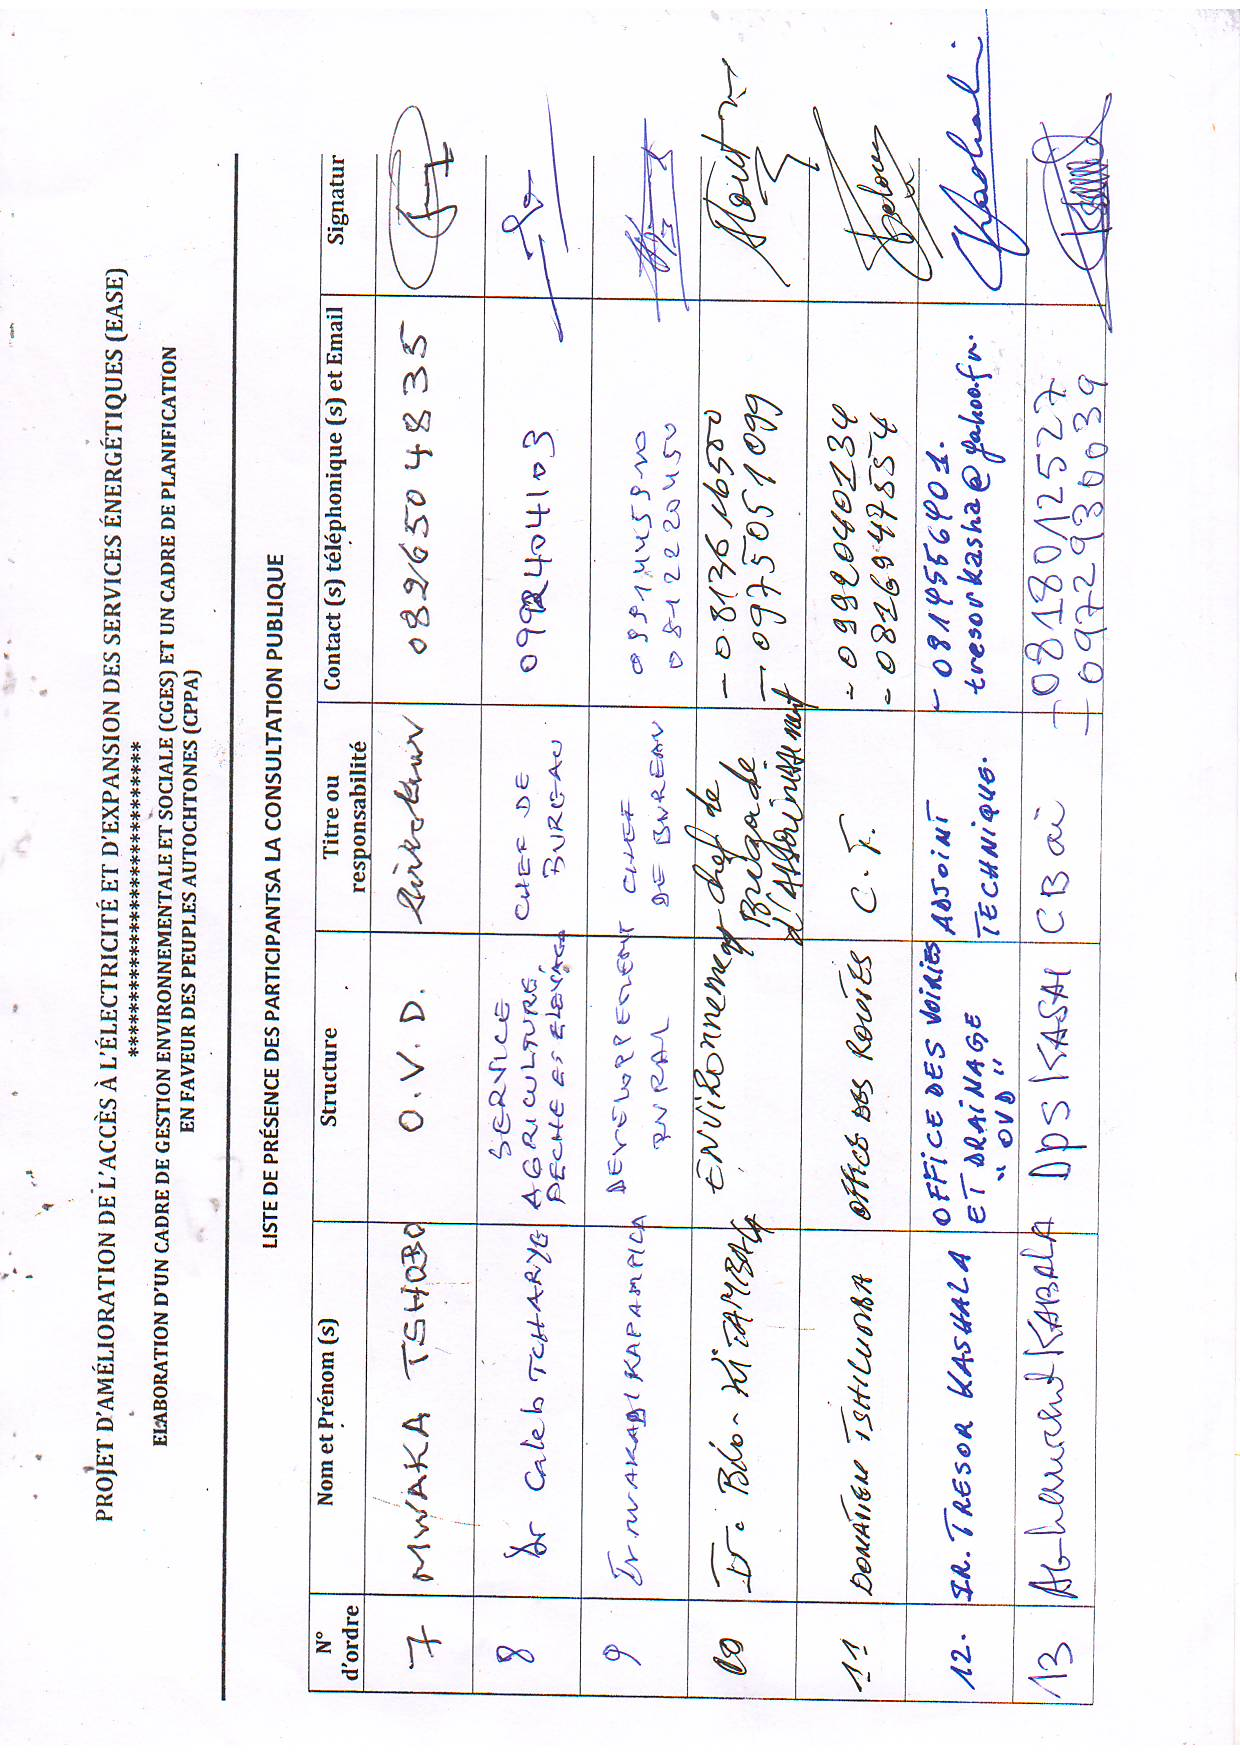 PROJET D'AMÉLIORATION DE L'ACCÈS À L'ÉLECTRICITÉ ET D'EXPANSION DES SERVICES ÉNERGÉTIQUES (EASE)
******************************
ELABORATION D'UN CADRE DE GESTION ENVIRONNEMENTALE ET SOCIALE (CGES) ET UN CADRE DE PLANIFICATION
EN FAVEUR DES PEUPLES AUTOCHTONES (CPPA)
LISTE DE PRÉSENCE DES PARTICIPANTSA LA CONSULTATION PUBLIQUE
N° d'ordre
Nom et Prénom (s)
Structure
Titre ou responsabilité
Contact (s) téléphonique (s) et Email
Signatur
7 MWAKA TSHOBO O.V.D. Directeur 082650 4835
8 Dr Caleb TCHARYE SERVICE AGRICULTURE, PECHE ET ELEVAGE CHEF DE BUREAU 0992404103
9 KAPAMPICA DEVELOPPEMENT RURAL CHEF DE BUREAU 0812220450
10 Ir. KITAMBALA ENVIRONNEMENT chef de Brigade d'assainissement - 0813616500
- 0975051099
11 DONATIEN TSHILUMBA OFFICE DES ROUTES C.T. - 0992040134
- 0816947554
12. IR. TRESOR KASHALA OFFICE DES VOIRIES ET DRAINAGE "OVD" ADJOINT TECHNIQUE. - 0814556401.
tresorkasha@yahoo.fr.
13 KABALA DPS KASAI CB ai - 0818012527
- 0972930039